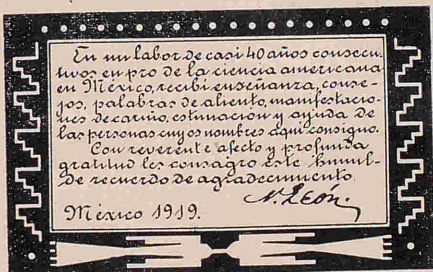 En mi labor de casi 40 años consecu-
tivos en pro de la ciencia americana
en México, recibí enseñanza, conse-
jos, palabras de aliento, manifestacio-
nes de cariño, estimacion y ayuda de
las personas cuyos nombres aqui consigno.
Con reverente afecto y profunda
gratitud les consagro este humil-
de recuerdo de agradecimiento.
N. León.
México 1919.